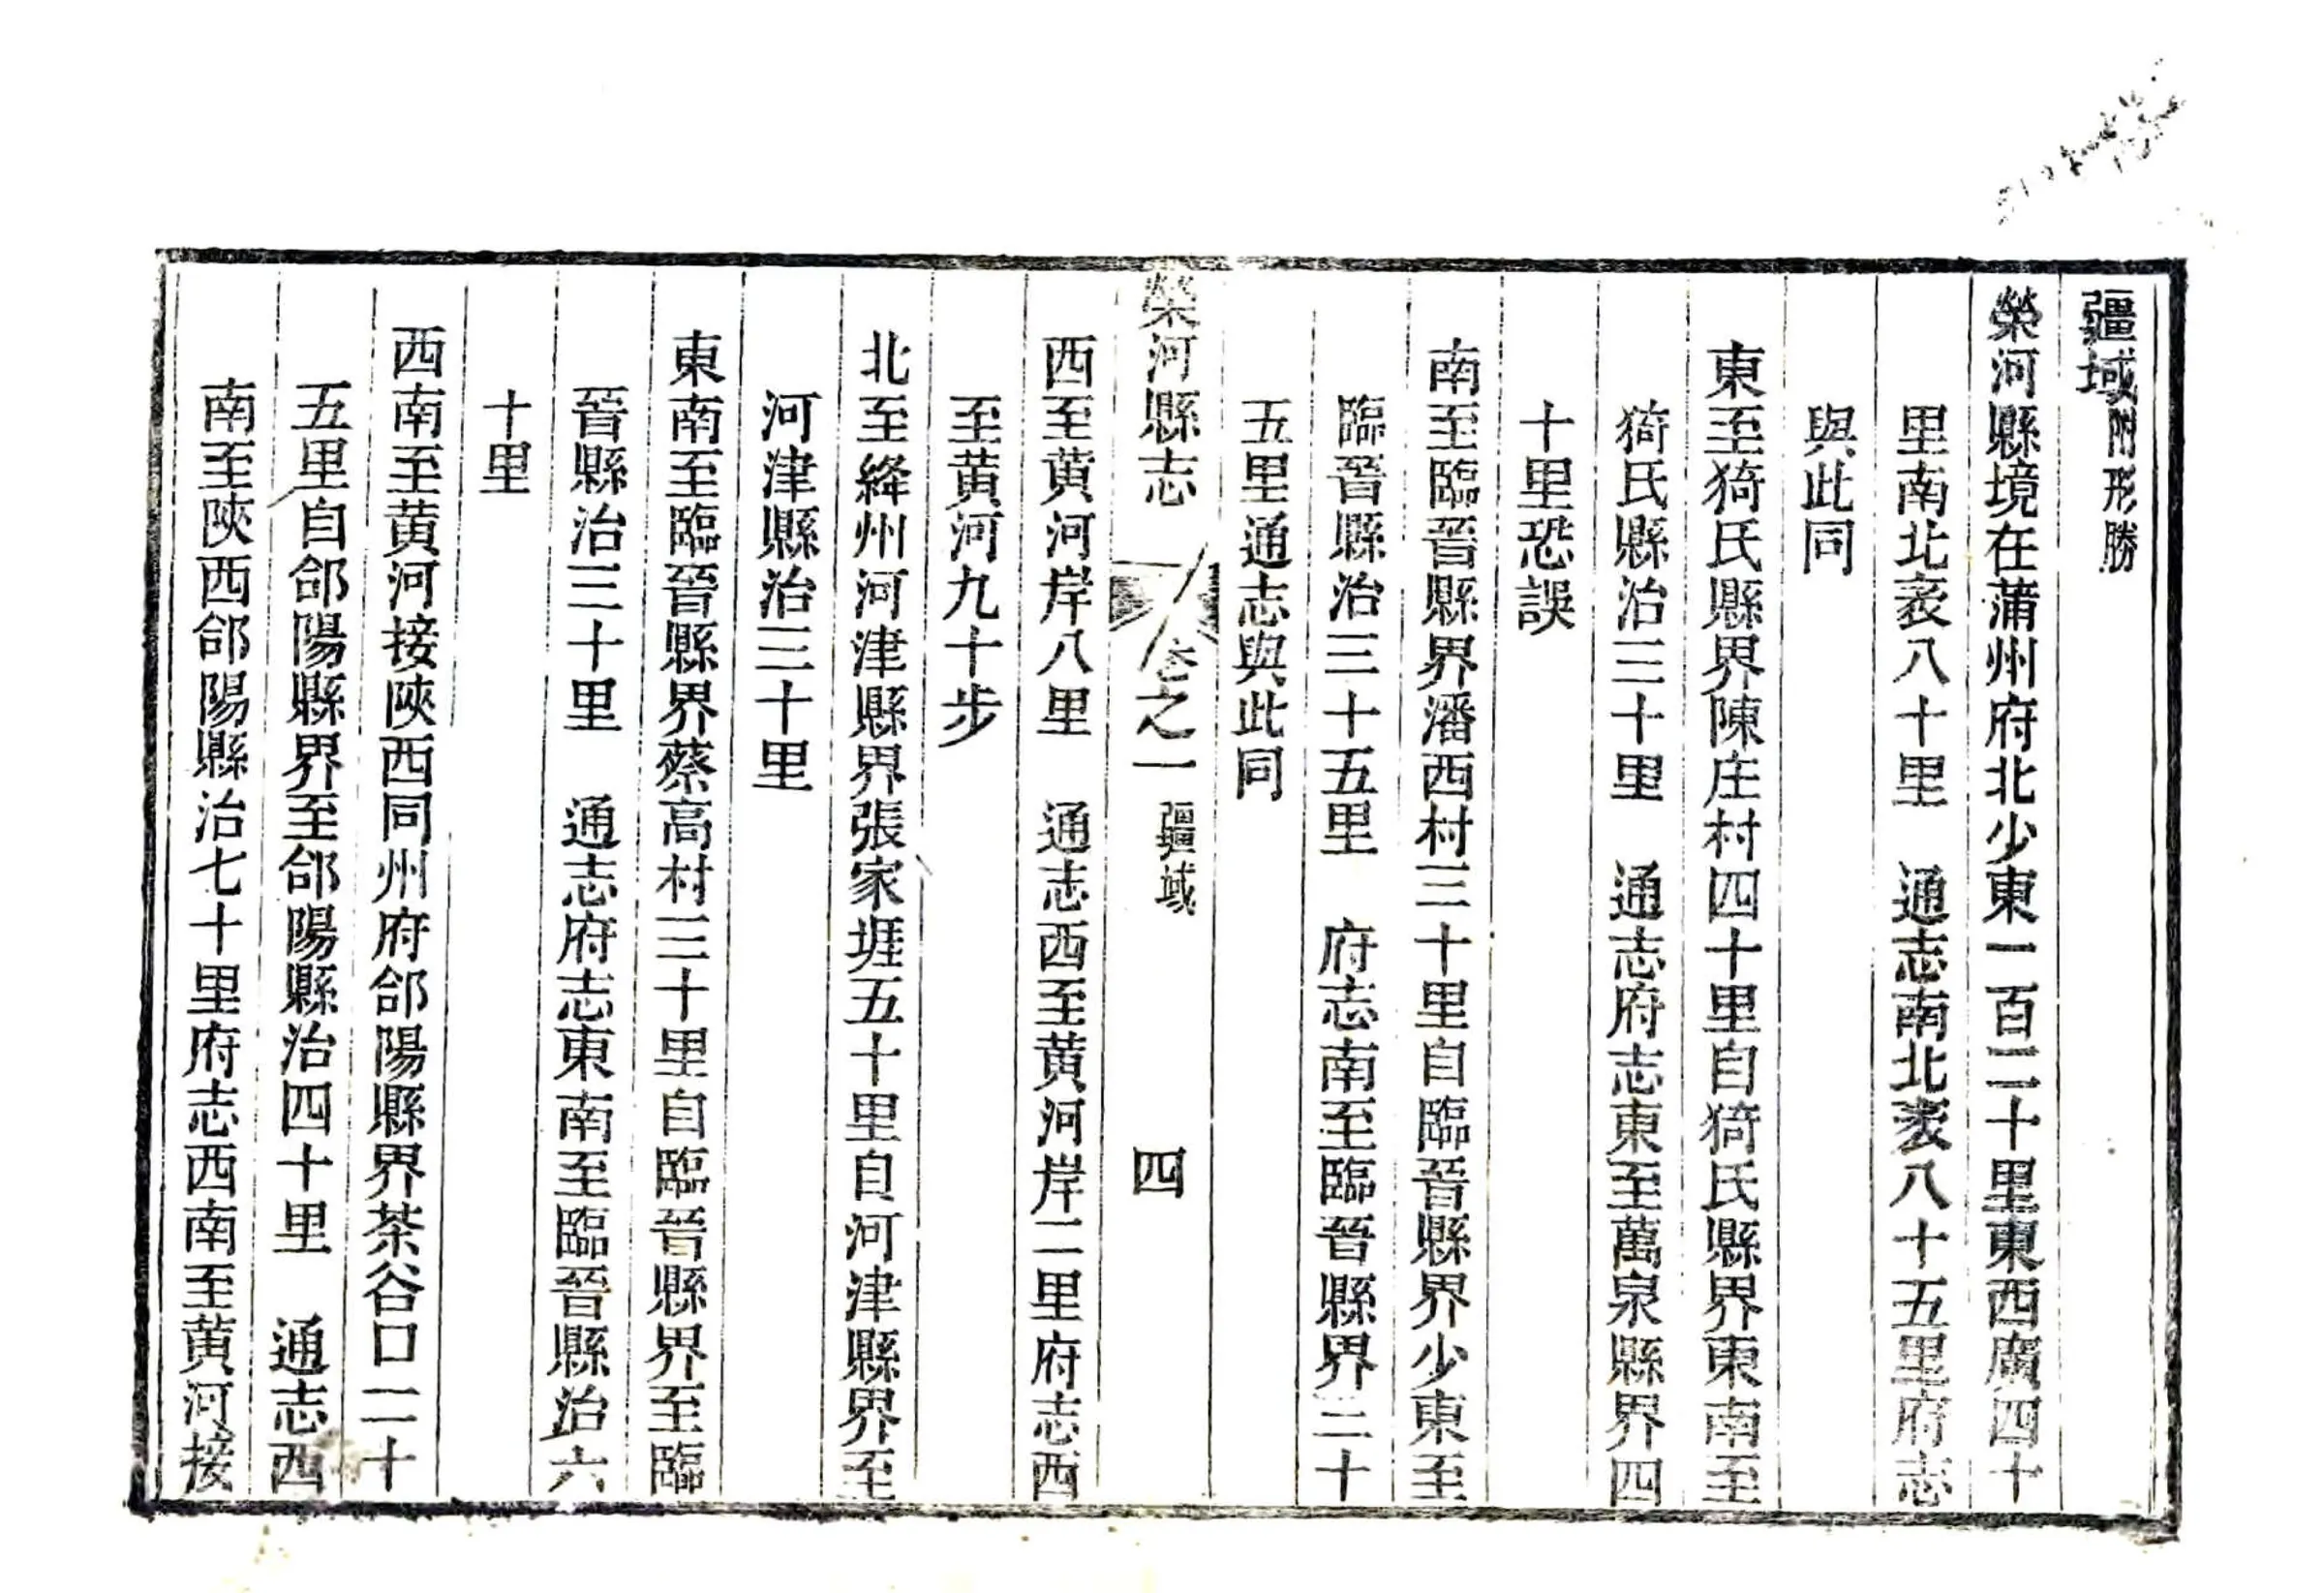 疆域附形勝
榮河縣境在蒲州府北少東一百二十里東西廣四十
里南北袤八十里　通志南北袤八十五里府志
與此同
東至猗氏縣界陳庄村四十里自猗氏縣界東南至
猗氏縣治三十里　通志府志東至萬泉縣界四
十里恐誤
南至臨晉縣界潘西村三十里自臨晉縣界少東至
臨晉縣治三十五里　府志南至臨晉縣界三十
五里通志與此同
榮河縣志　卷之一　疆域　四
西至黃河岸八里　通志西至黃河岸二里府志西
至黃河九十步
北至絳州河津縣界張家堐五十里自河津縣界至
河津縣治三十里
東南至臨晉縣界蔡高村三十里自臨晉縣界至臨
晉縣治三十里　通志府志東南至臨晉縣治六
十里
西南至黃河接陝西同州府郃陽縣界茶谷口二十
五里自郃陽縣界至郃陽縣治四十里　通志西
南至陝西郃陽縣治七十里府志西南至黃河接